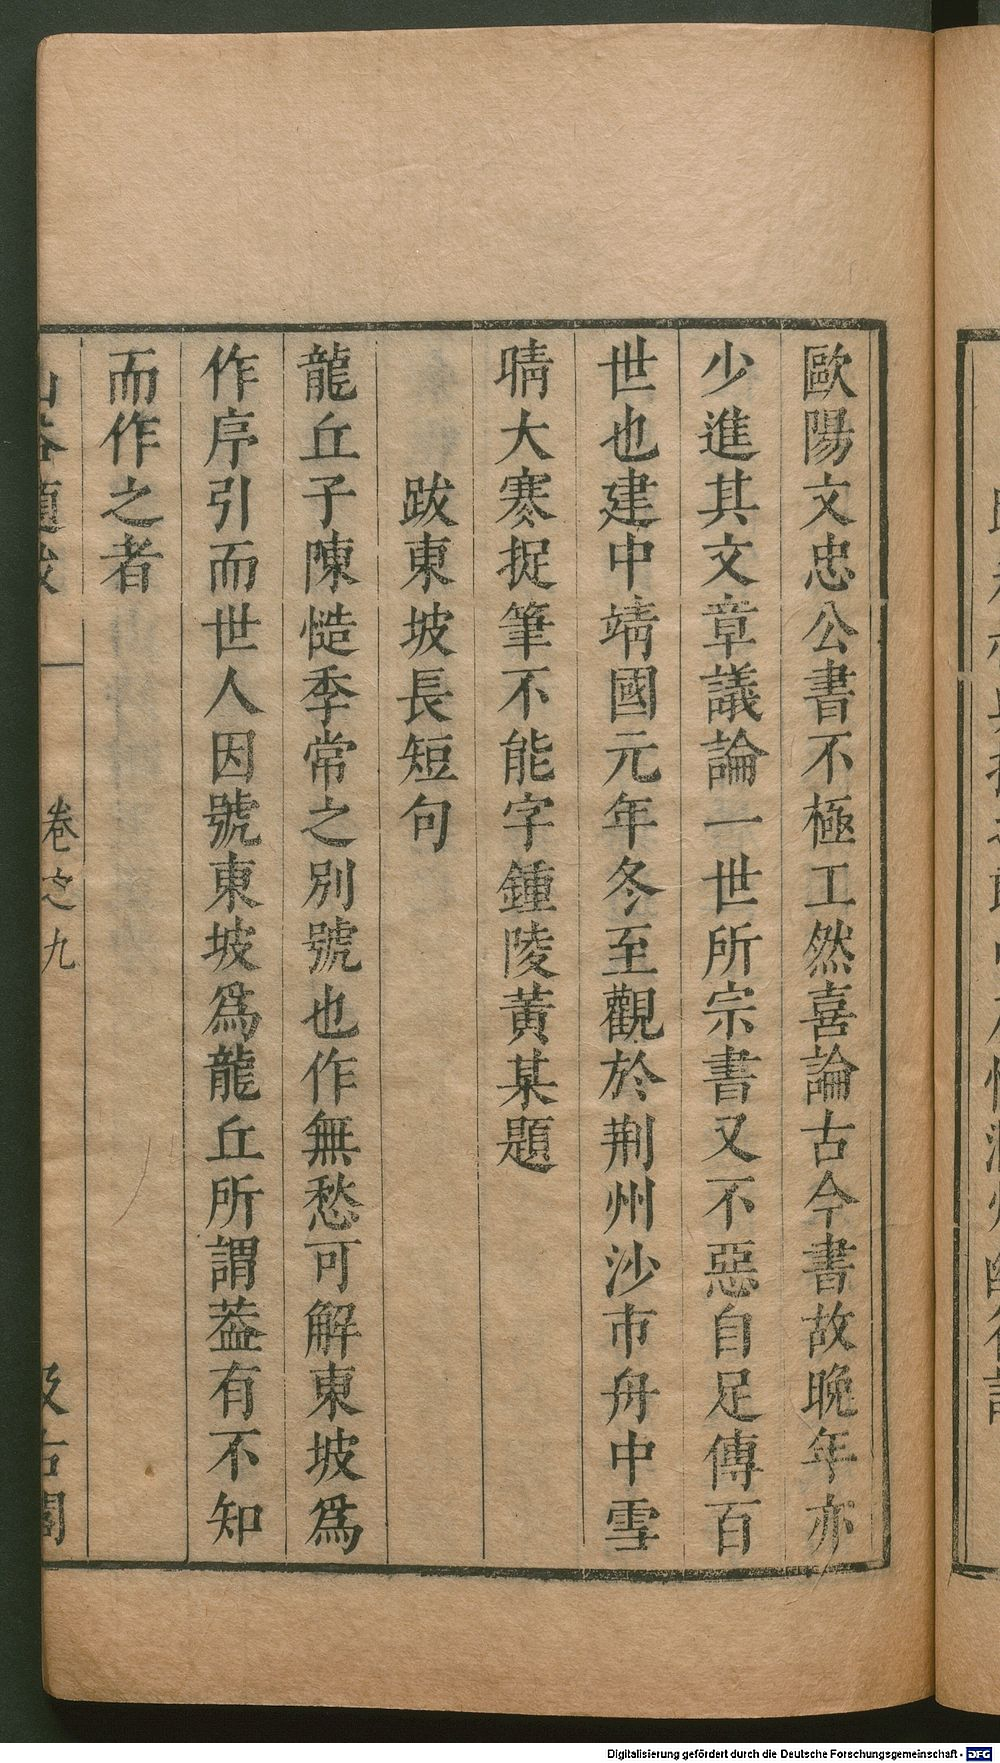 歐陽文忠公書不極工然喜論古今書故晚年亦
少進其文章議論一世所宗書又不惡自足傳百
世也建中靖國元年冬至觀於荆州沙市舟中雪
晴大寒捉筆不能字鍾陵黃某題
跋東坡長短句
龍丘子陳慥季常之別號也作無愁可解東坡爲
作序引而世人因號東坡爲龍丘所謂葢有不知
而作之者
山谷題跋 卷之九 汲古閣
Digitalisierung gefördert durch die Deutsche Forschungsgemeinschaft - DFG